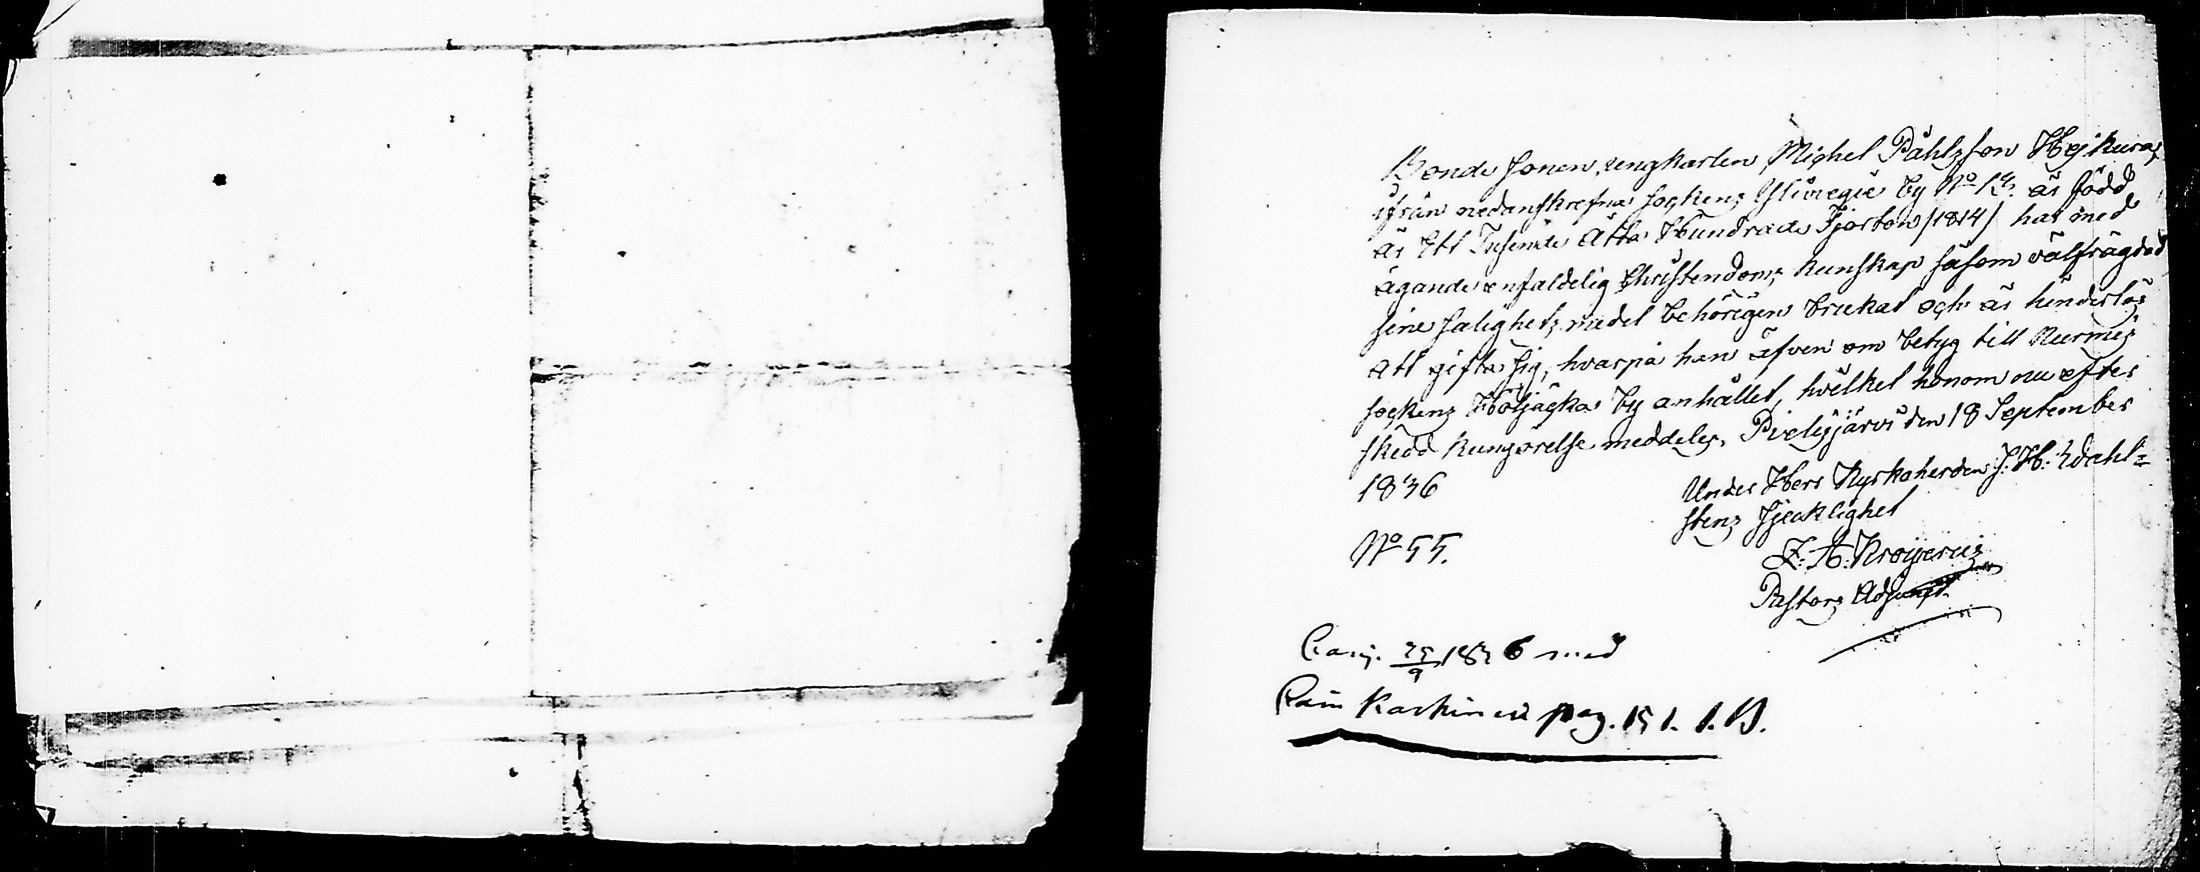 Bonde Sonen, ungkarlen Michel Påhlsson Hejkura,
ifrån nedanskrefne Sockens by No 14. är född
år Ett Tusende Åtta Hundrade Fjorton /1814/ har med
ägande enfaldelig Christendoms kunskap såsom välfrägdad
sine salighets medel behörigen brukat och är hinderlös
att gifta sig, hvarpå han äfven om betyg till Nurmis
Sockens Höljäkä by anhållet, hvilket honom nu efter
skedd kungörelse meddeles, Pielisjärvi den 18 September
1836
Under Herr Kyrkoherden J: H: Wahl=
stens Sjecklighet
No 55.
Z: A: Kroijerus
Pastors Adjunct.
Copuj. 25/9 1836 med
Karhinen pag. 151. 1. B.